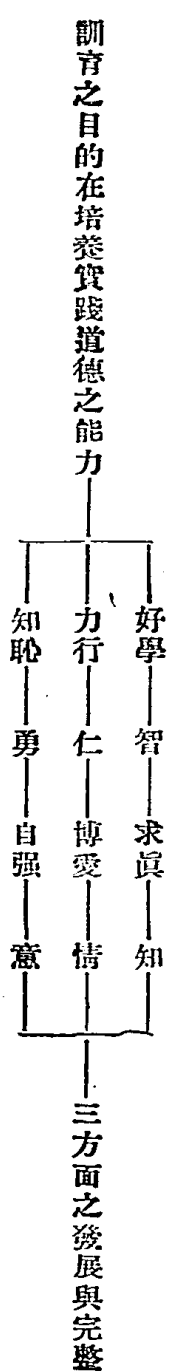 訓育之目的在培養實踐道德之能力
好學 智 求眞 知
力行 仁 博愛 情
知恥 勇 自强 意
三方面之發展與完整